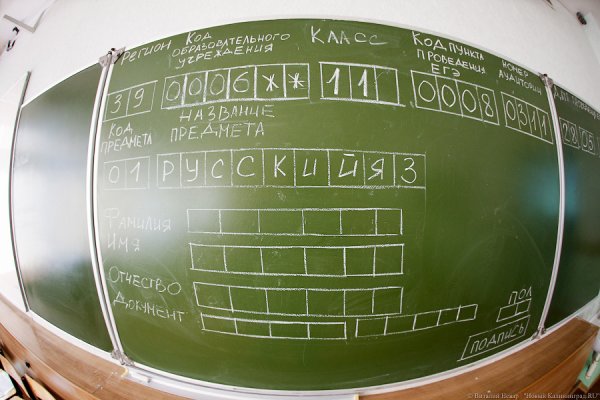 Регион Код образовательного учреждения Класс Код пункта проведения ЕГЭ Номер аудитории
39 0006** 11 0008 0311 28 05
Код предмета Название предмета
01 РУССКИЙ ЯЗ
Фамилия
Имя
Отчество
Документ
Пол
Подпись
© Виталий Невар "Новый Калининград.RU"